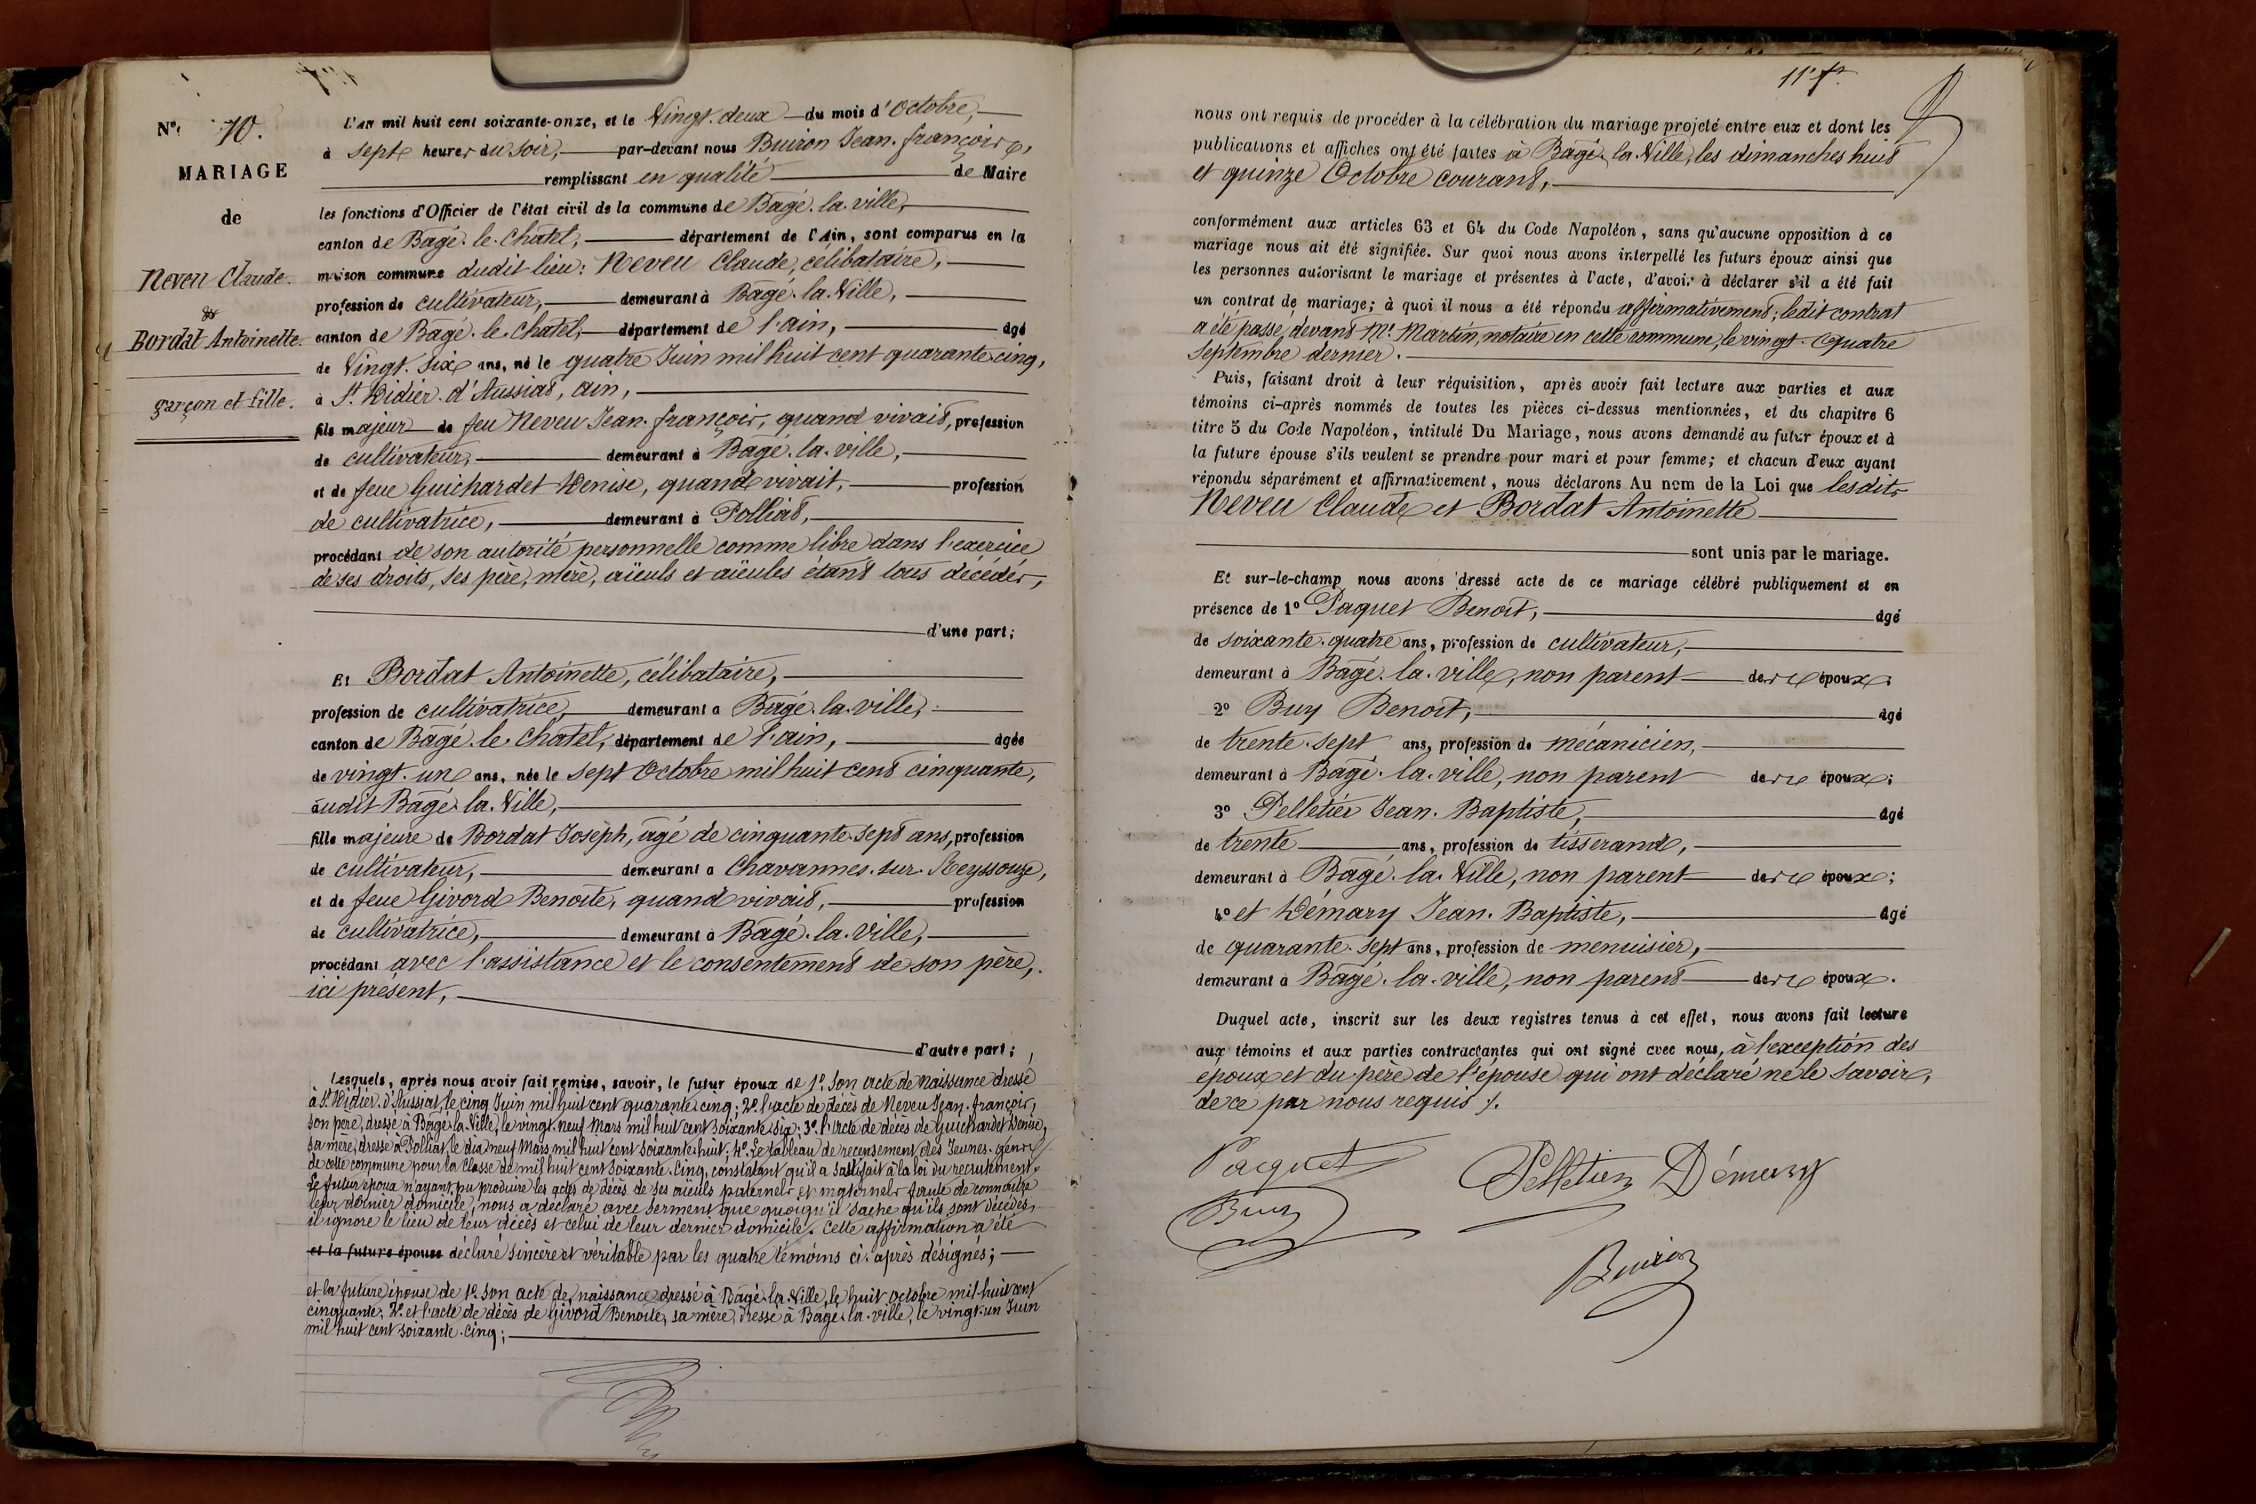 N° 10.
MARIAGE
de
Neveu Claude.
&
Bordat Antoinette.
garçon et fille.
L'an mil huit cent soixante-onze, et le Vingt-deux du mois d'Octobre,
à sept heures du soir, par-devant nous Buiron Jean-françois,
remplissant en qualité de Maire
les fonctions d'Officier de l'état civil de la commune de Bâgé-la-ville,
canton de Bâgé-le-Chatel, département de l'Ain, sont comparus en la
maison commune dudit lieu: Neveu Claude, célibataire,
profession de cultivateur, demeurant à Bâgé-la-Ville,
canton de Bâgé-le-Chatel, département de l'ain, âgé
de Vingt-six ans, né le quatre Juin mil huit cent quarante cinq,
à St Didier-d'Aussiat, ain,
fils majeur de feu Neveu Jean-françois, quand vivait, profession
de cultivateur, demeurant à Bâgé-la-ville,
et de feue Guichardet Denise, quand vivait, profession
de cultivatrice, demeurant à Polliat,
procédant de son autorité personnelle comme libre dans l'exercice
de ses droits, ses père, mère, aïeuls et aïeules étant tous décédés,
d'une part;
Et Bordat Antoinette, célibataire,
profession de cultivatrice, demeurant à Bâgé-la-ville,
canton de Bâgé-le-Chatel, département de l'ain, âgée
de vingt-un ans, née le sept Octobre mil huit cent cinquante,
audit Bâgé-la-Ville,
fille majeure de Bordat Joseph, âgé de cinquante-sept ans, profession
de cultivateur, demeurant à Chavannes-sur-Reyssouze,
et de feue Givord Benoite, quand vivait, profession
de cultivatrice, demeurant à Bâgé-la-ville,
procédant avec l'assistance et le consentement de son père,
ici présent,
d'autre part;
Lesquels, après nous avoir fait remise, savoir, le futur époux de 1° Son acte de Naissance dressé
à St Didier-d'Aussiat, le cinq Juin mil huit cent quarante-cinq; 2° l'acte de décès de Neveu Jean-françois,
son père, dressé à Bâgé-la-Ville, le vingt-neuf Mars mil huit cent soixante-six; 3° l'acte de décès de Guichardet Denise,
sa mère, dressé à Polliat, le dix neuf Mars mil huit cent soixante huit; 4° Le tableau de recensement des Jeunes-gens
de cette commune pour la classe de mil huit cent soixante-cinq, constatant qu'il a satisfait à la loi du recrutement.
Le futur époux n'ayant pu produire les actes de décès de ses aïeuls paternels et maternels faute de connaître
leur dernier domicile, nous a déclaré avec serment que quoiqu'il sache qu'ils sont décédés,
il ignore le lieu de leur décès et celui de leur dernier domicile. Cette affirmation a été
et la future épouse déclaré sincère et véritable par les quatre témoins ci-après désignés;
et la future épouse de 1° Son acte de naissance dressé à Bâgé-la-Ville, le huit octobre mil-huit cent
cinquante; 2° et l'acte de décès de Givord Benoite, sa mère, dressé à Bâgé-la-ville, le vingt-un Juin
mil huit cent soixante-cinq;
11e
nous ont requis de procéder à la célébration du mariage projeté entre eux et dont les
publications et affiches ont été faites à Bâgé-la-Ville, les dimanches huit
et quinze Octobre courant,
conformément aux articles 63 et 64 du Code Napoléon, sans qu'aucune opposition à ce
mariage nous ait été signifiée. Sur quoi nous avons interpellé les futurs époux ainsi que
les personnes autorisant le mariage et présentes à l'acte, d'avoir à déclarer s'il a été fait
un contrat de mariage; à quoi il nous a été répondu affirmativement; ledit contrat
a été passé devant Me Martin, notaire en cette commune, le vingt-quatre
septembre dernier.
Puis, faisant droit à leur réquisition, après avoir fait lecture aux parties et aux
témoins ci-après nommés de toutes les pièces ci-dessus mentionnées, et du chapitre 6
titre 5 du Code Napoléon, intitulé Du Mariage, nous avons demandé au futur époux et à
la future épouse s'ils veulent se prendre pour mari et pour femme; et chacun d'eux ayant
répondu séparément et affirmativement, nous déclarons Au nom de la Loi que lesdits
Neveu Claude et Bordat Antoinette
sont unis par le mariage.
Et sur-le-champ nous avons dressé acte de ce mariage célébré publiquement et en
présence de 1° Paquet Benoit, âgé
de soixante-quatre ans, profession de cultivateur,
demeurant à Bâgé-la-ville, non parent des époux;
2° Buy Benoit, âgé
de trente-sept ans, profession de mécanicien,
demeurant à Bâgé-la-ville, non parent des époux;
3° Pelletier Jean-Baptiste, âgé
de trente ans, profession de tisserand,
demeurant à Bâgé-la-Ville, non parent des époux;
4° et Démary Jean-Baptiste, âgé
de quarante-sept ans, profession de menuisier,
demeurant à Bâgé-la-ville, non parent des époux.
Duquel acte, inscrit sur les deux registres tenus à cet effet, nous avons fait lecture
aux témoins et aux parties contractantes qui ont signé avec nous, à l'exception des
époux et du père de l'épouse qui ont déclaré ne le savoir,
de ce par nous requis /.
Pacquet Pelletier Démary
Buy
Buiron